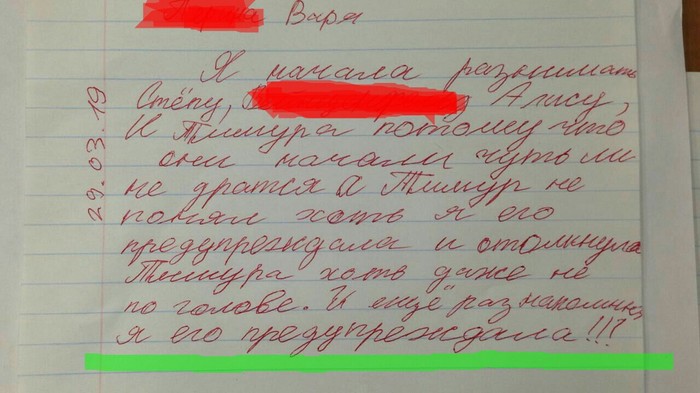 Варя
Я начала разнимать
Стёпу, Алису,
И Тимура потому что
они начали чуть ли
не дратся А Тимур не
понял хоть я его
предупреждала и отолкнула
Тимура хоть даже не
по голове. И ещё раз напомню,
я его предупреждала!!!
29.03.19